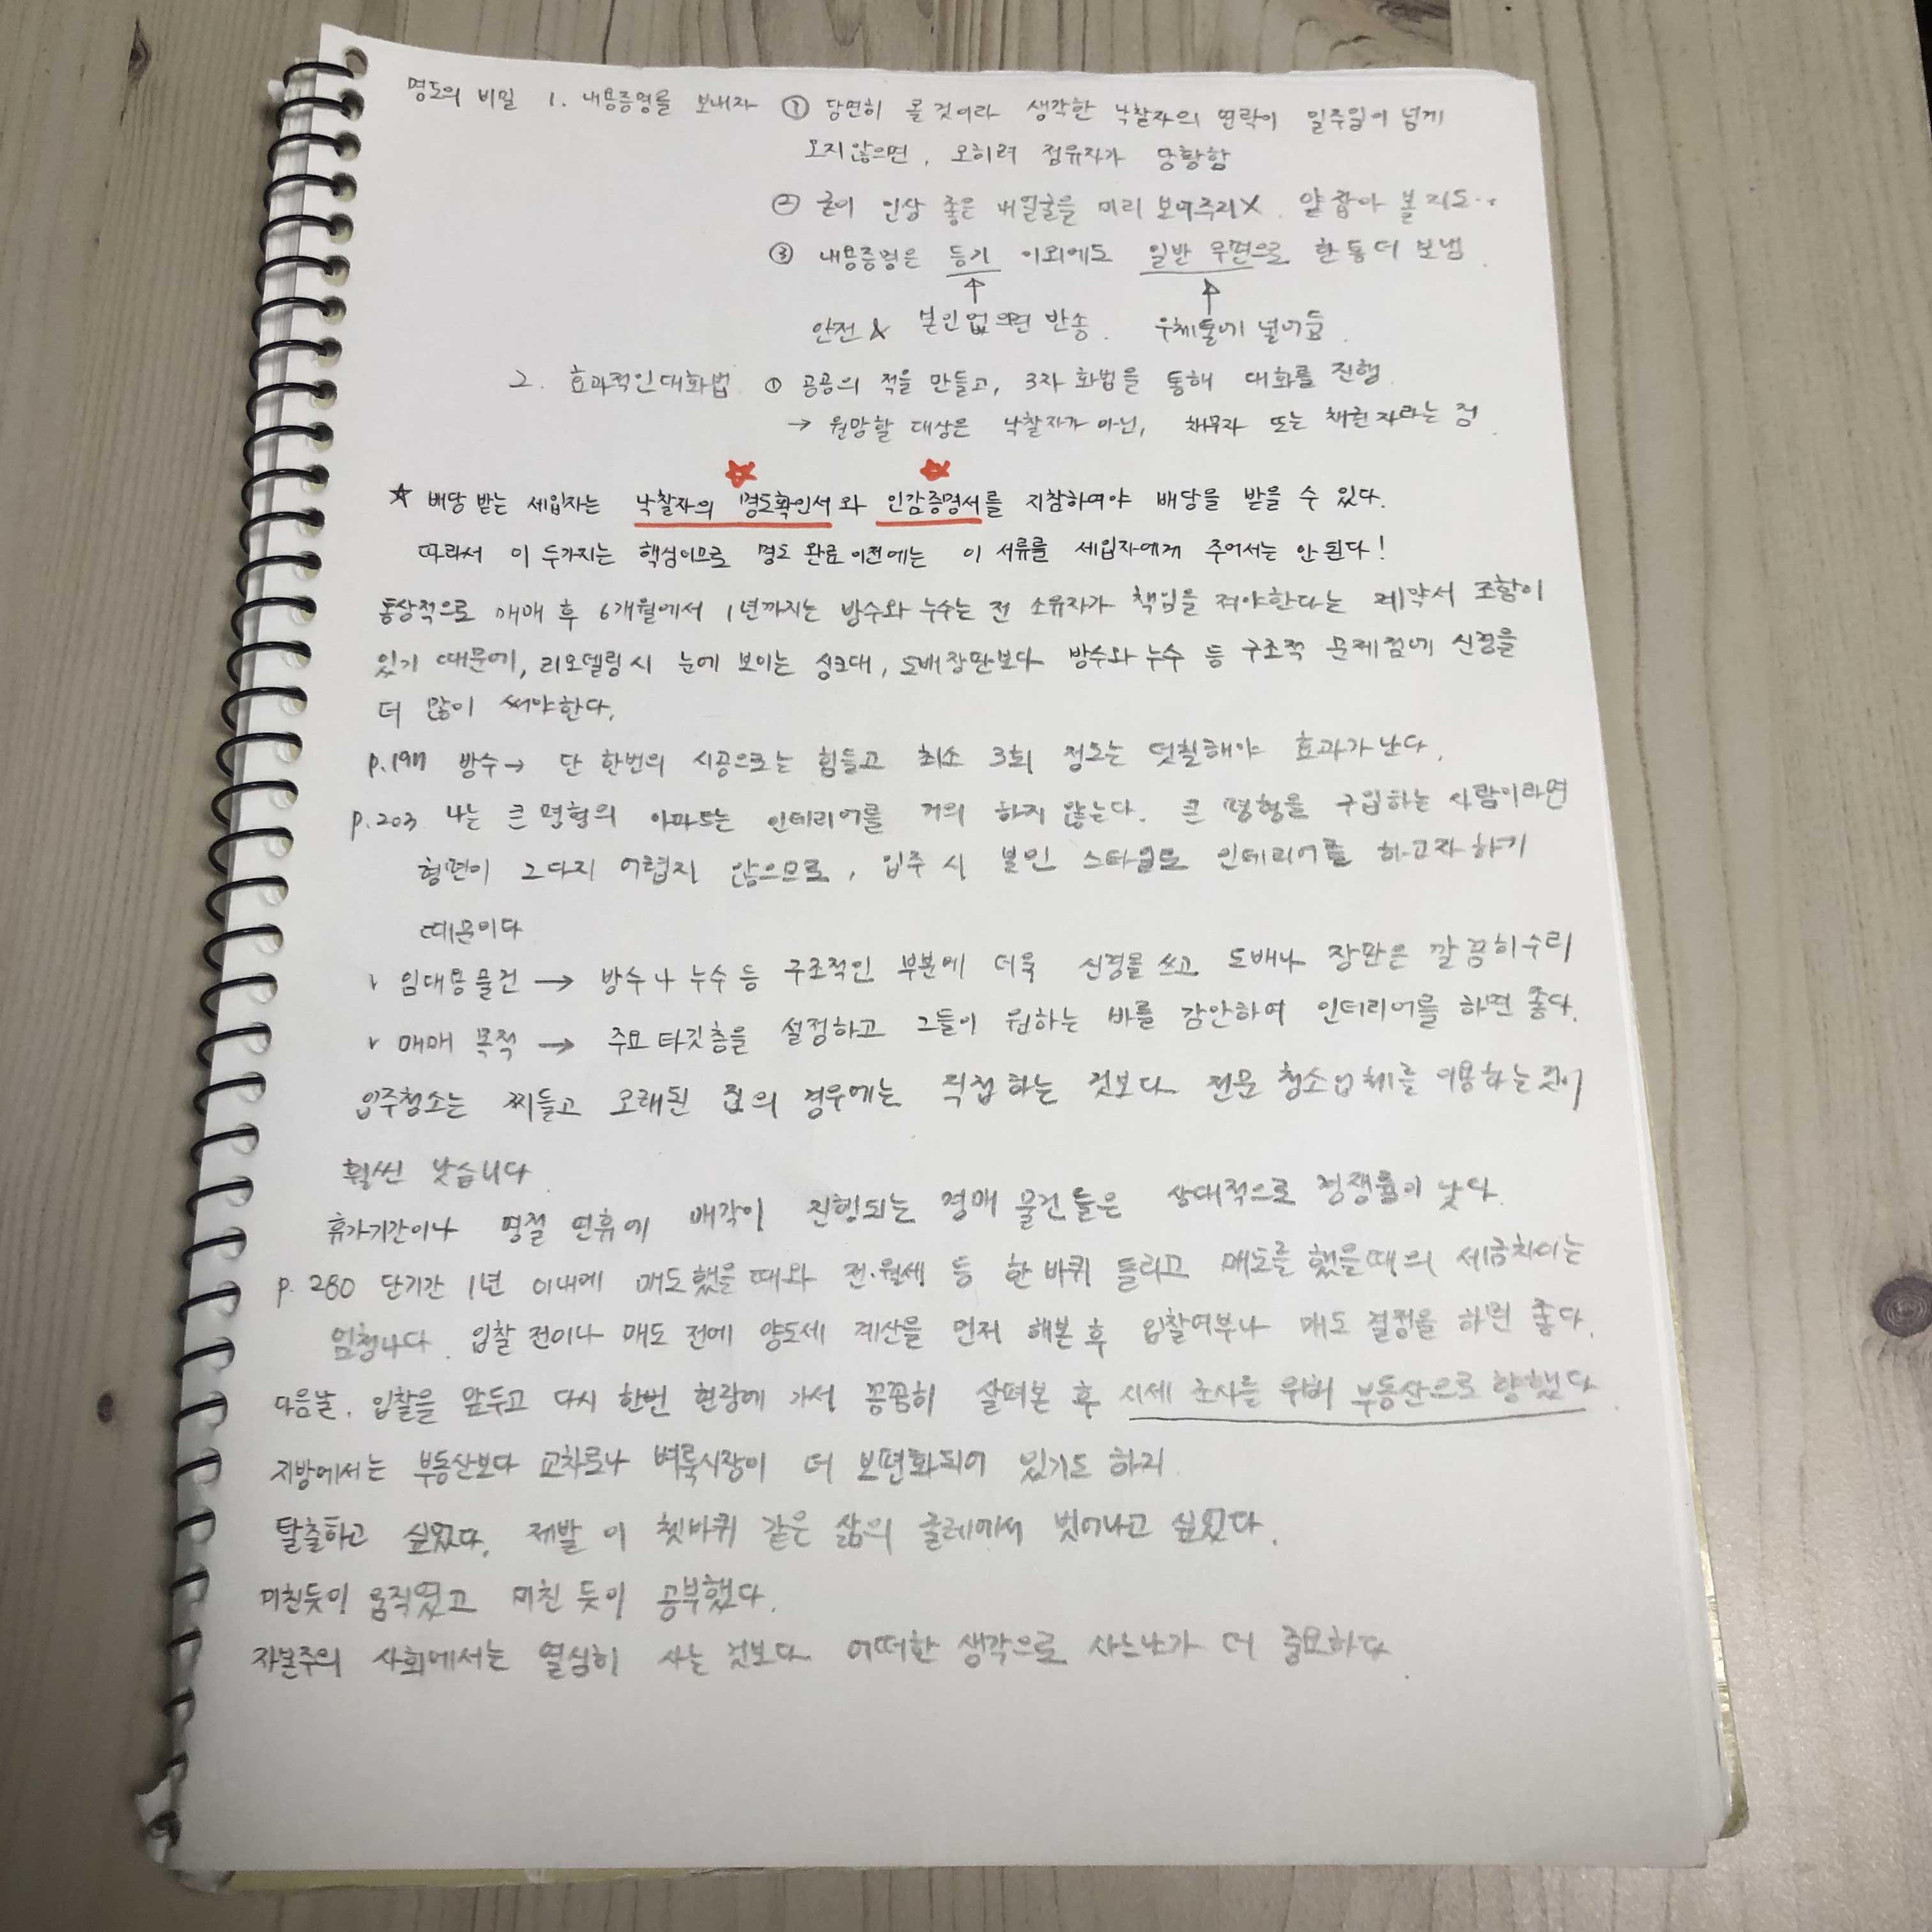 명도의 비밀 1. 내용증명을 보내자 ① 당연히 올 것이라 생각한 낙찰자의 연락이 일주일이 넘게
오지 않으면, 오히려 점유자가 당황함
② 굳이 인상 좋은 내 얼굴을 미리 보여주지 X. 얕잡아 볼지도..
③ 내용증명은 등기 이외에도 일반 우편으로 한통 더 보냄.
↑ ↑
안전 X 본인없으면 반송. 우체통에 넣어둠.
2. 효과적인 대화법 ① 공공의 적을 만들고, 3자 화법을 통해 대화를 진행.
→ 원망할 대상은 낙찰자가 아닌, 채무자 또는 채권자라는 점.
☆ 배당 받는 세입자는 낙찰자의 명도확인서와 인감증명서를 지참하여야 배당을 받을 수 있다.
따라서 이 두가지는 핵심이므로 명도 완료 이전에는 이 서류를 세입자에게 주어서는 안 된다!
통상적으로 매매 후 6개월에서 1년까지는 방수와 누수는 전 소유자가 책임을 져야한다는 계약서 조항이
있기 때문에, 리모델링 시 눈에 보이는 싱크대, 도배장판보다 방수와 누수 등 구조적 문제점에 신경을
더 많이 써야한다.
p.197 방수→ 단 한번의 시공으로는 힘들고 최소 3회 정도는 덧칠해야 효과가 난다.
p.203 나는 큰 평형의 아파트는 인테리어를 거의 하지 않는다. 큰 평형을 구입하는 사람이라면
형편이 그다지 어렵지 않으므로, 입주 시 본인 스타일로 인테리어를 하고자 하기
때문이다
v 임대용 물건 → 방수나 누수 등 구조적인 부분에 더욱 신경을 쓰고 도배나 장판은 깔끔히 수리
v 매매 목적 → 주요 타깃층을 설정하고 그들이 원하는 바를 감안하여 인테리어를 하면 좋다.
입주청소는 찌들고 오래된 집의 경우에는 직접 하는 것보다 전문 청소업체를 이용하는 것이
훨씬 낫습니다.
휴가기간이나 명절 연휴에 매각이 진행되는 경매 물건들은 상대적으로 경쟁률이 낮다.
p. 280 단기간 1년 이내에 매도했을 때와 전·월세 등 한 바퀴 돌리고 매도를 했을때의 세금차이는
엄청나다. 입찰 전이나 매도 전에 양도세 계산을 먼저 해본 후 입찰여부나 매도 결정을 하면 좋다.
다음날, 입찰을 앞두고 다시 한번 현장에 가서 꼼꼼히 살펴본 후 시세 조사를 위해 부동산으로 향했다.
지방에서는 부동산보다 교차로나 벼룩시장이 더 보편화되어 있기도 하지.
탈출하고 싶었다. 제발 이 쳇바퀴 같은 삶의 굴레에서 벗어나고 싶었다.
미친듯이 움직였고 미친 듯이 공부했다.
자본주의 사회에서는 열심히 사는 것보다 어떠한 생각으로 사느냐가 더 중요하다.